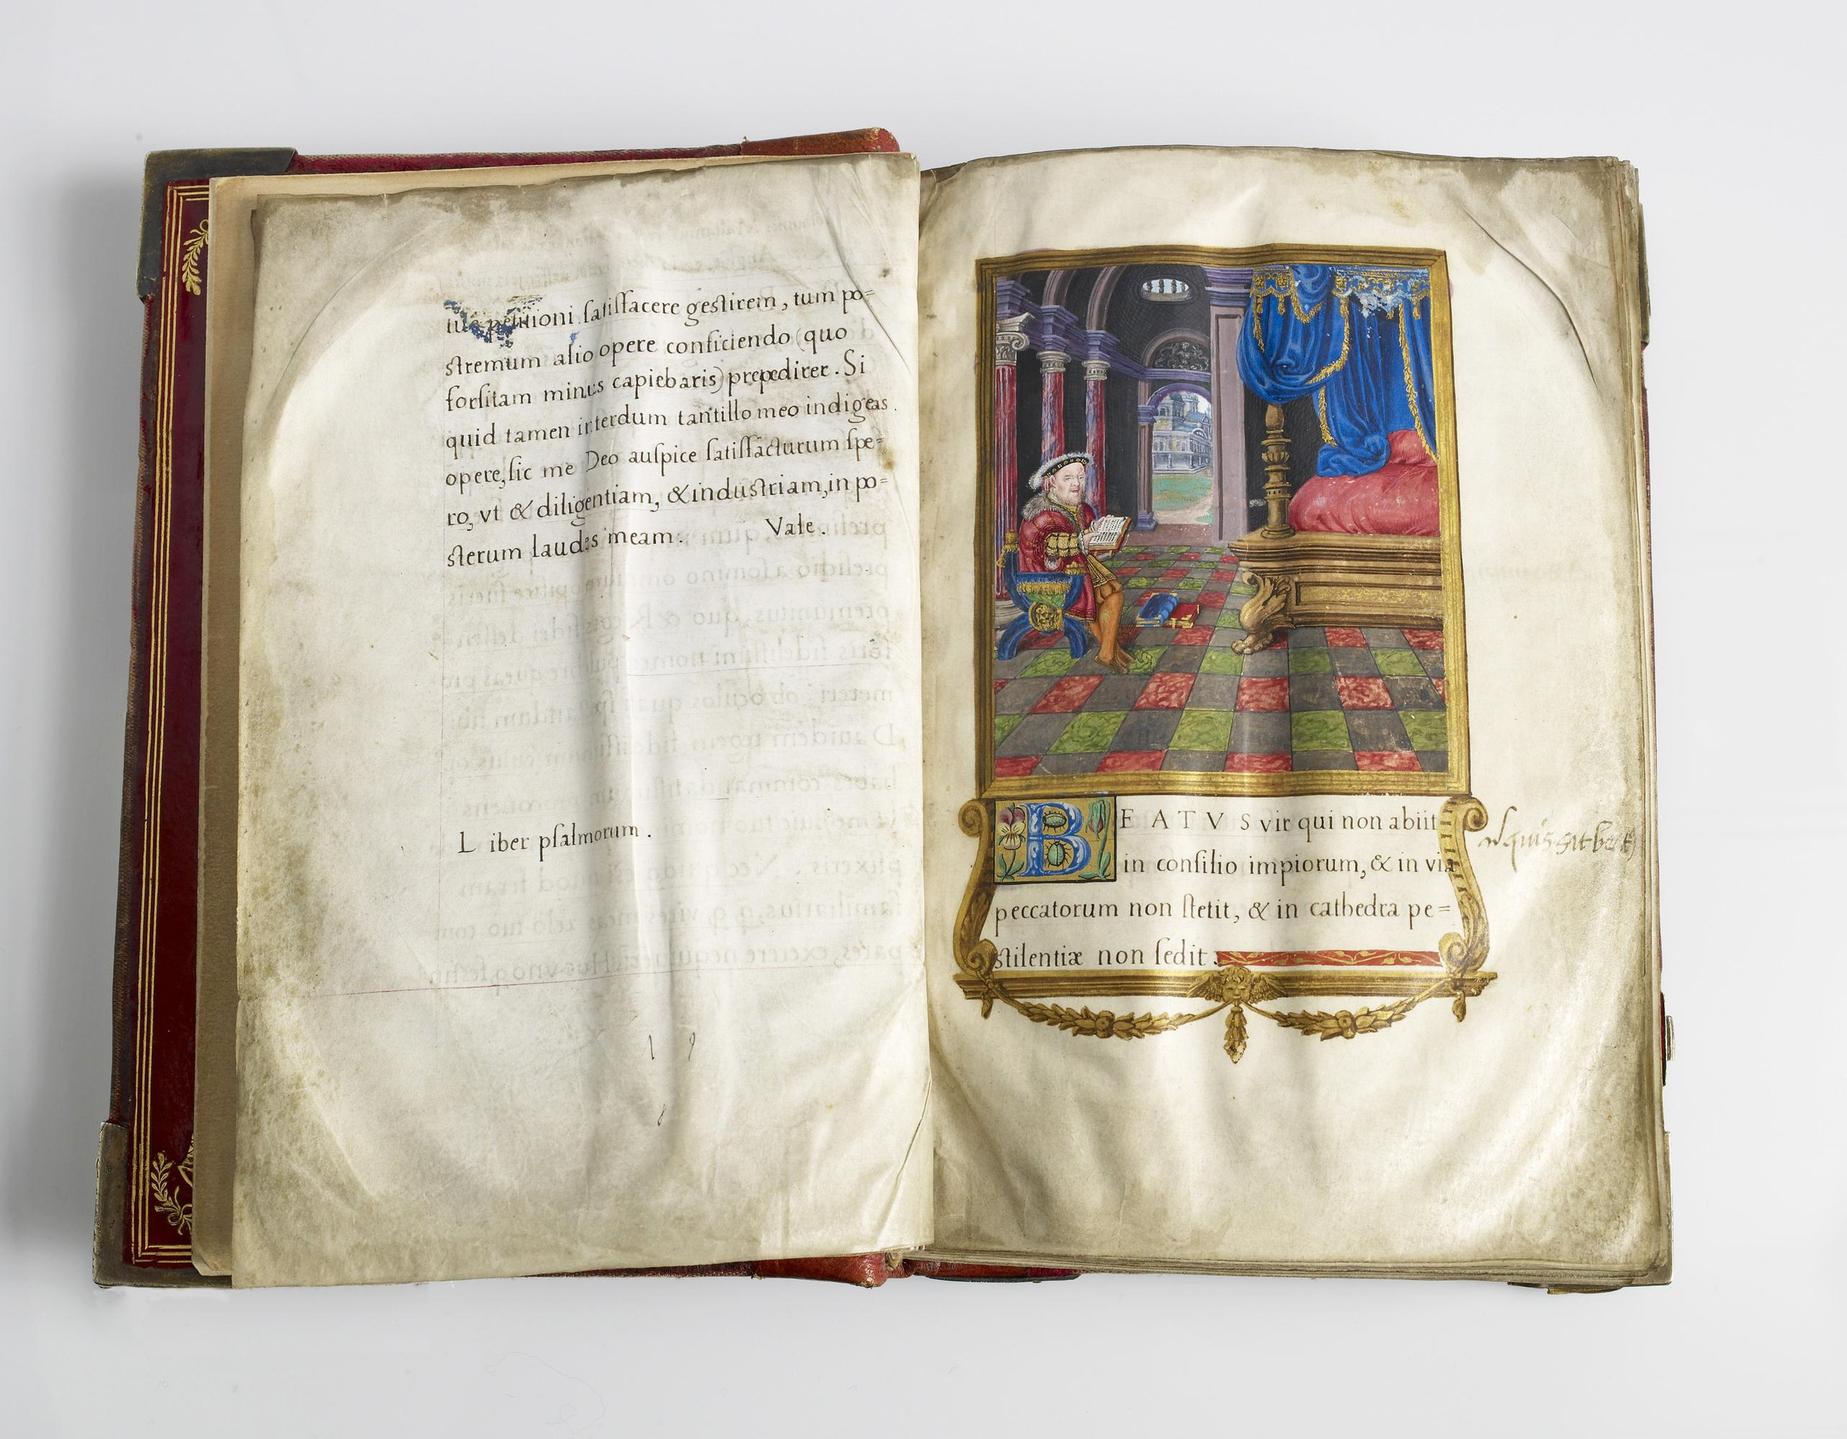 tuę petitioni satisfacere gestirem, tum po=
stremum alio opere conficiendo (quo
forsitam minus capiebaris) prepedirer. Si
quid tamen interdum tantillo meo indigeas
opere, sic me Deo auspice satisfacturum spe=
ro, vt & diligentiam, & industriam, in po=
sterum laudes meam. Vale.
Liber psalmorum.
BEATVS vir qui non abiit
in consilio impiorum, & in via
peccatorum non stetit, & in cathedra pe=
stilentiæ non sedit.